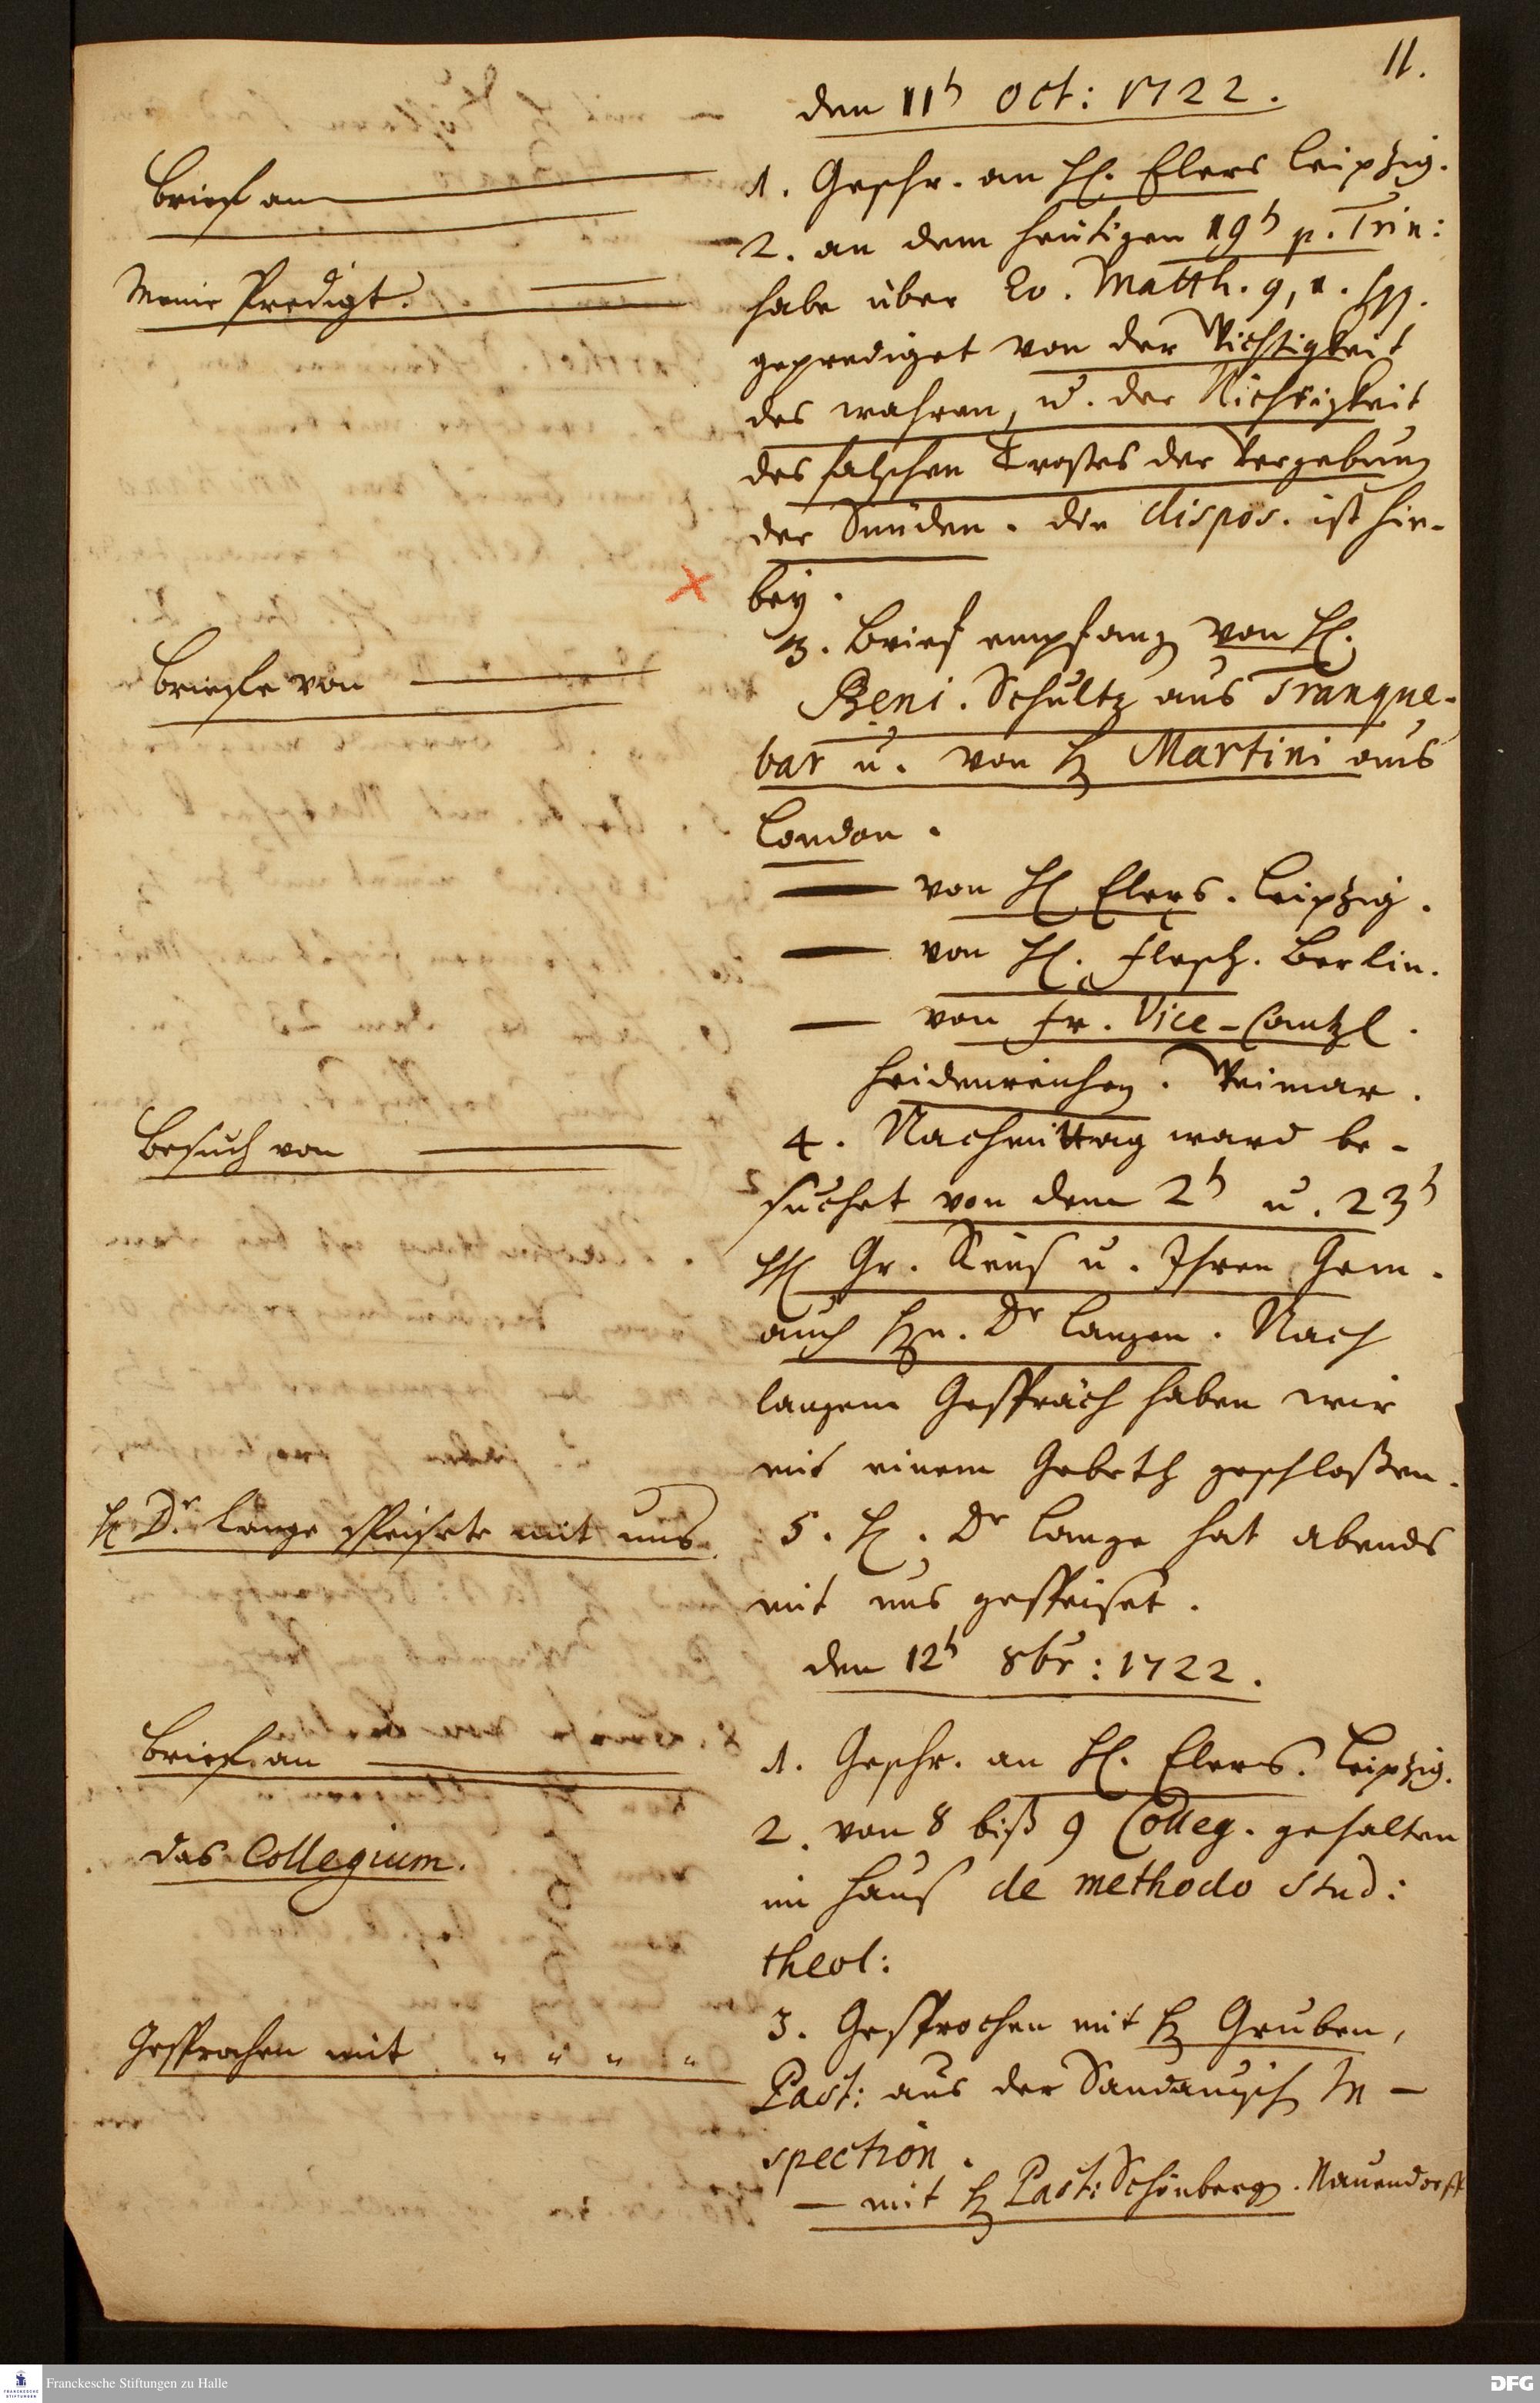 11.
den 11t Oct: 1722.
Brief an
1. Geschr. an H. Elers Leipzig.
2. an dem heutigen 19t p. Trin:
Meine Predigt.
habe über Ev. Matth. 9, 1. sqq.
geprediget von der Wichtigkeit
des wahren, u. der Nichtigkeit
des falschen Trostes der Vergebung
der Sünden. die dispos. ist hie-
bey.
3. Brief empfang von H.
Briefe von
Beni. Schultz aus Tranque-
bar u. von H Martini aus
London.
von H Elers. Leipzig.
von H. Flesch. Berlin.
von Fr. Vice-Cantzl.
Heidenreichen. Weimar.
Besuch von
4. Nachmittag ward be-
suchet von dem 2t u. 23t
HH Gr. Reuß u. Ihren Gem.
auch Hn. Dr Langen. Nach
langem Gespräch haben wir
mit einem Gebeth geschloßen.
H Dr. Lange speisete mit uns.
5. H. Dr Lange hat abends
mit uns gespeiset.
den 12t 8br: 1722.
Brief an
1. Geschr. an H. Elers. Leipzig.
2. von 8 biß 9 Colleg. gehalten
das Collegium.
im Hauß de methodo stud:
theol:
3. Gesprochen mit H Gruben,
Gesprochen mit " " " "
Past: aus der Sandauisch In-
spection.
— mit H Past: Schönberg. Nauendorff
Franckesche Stiftungen zu Halle
DFG